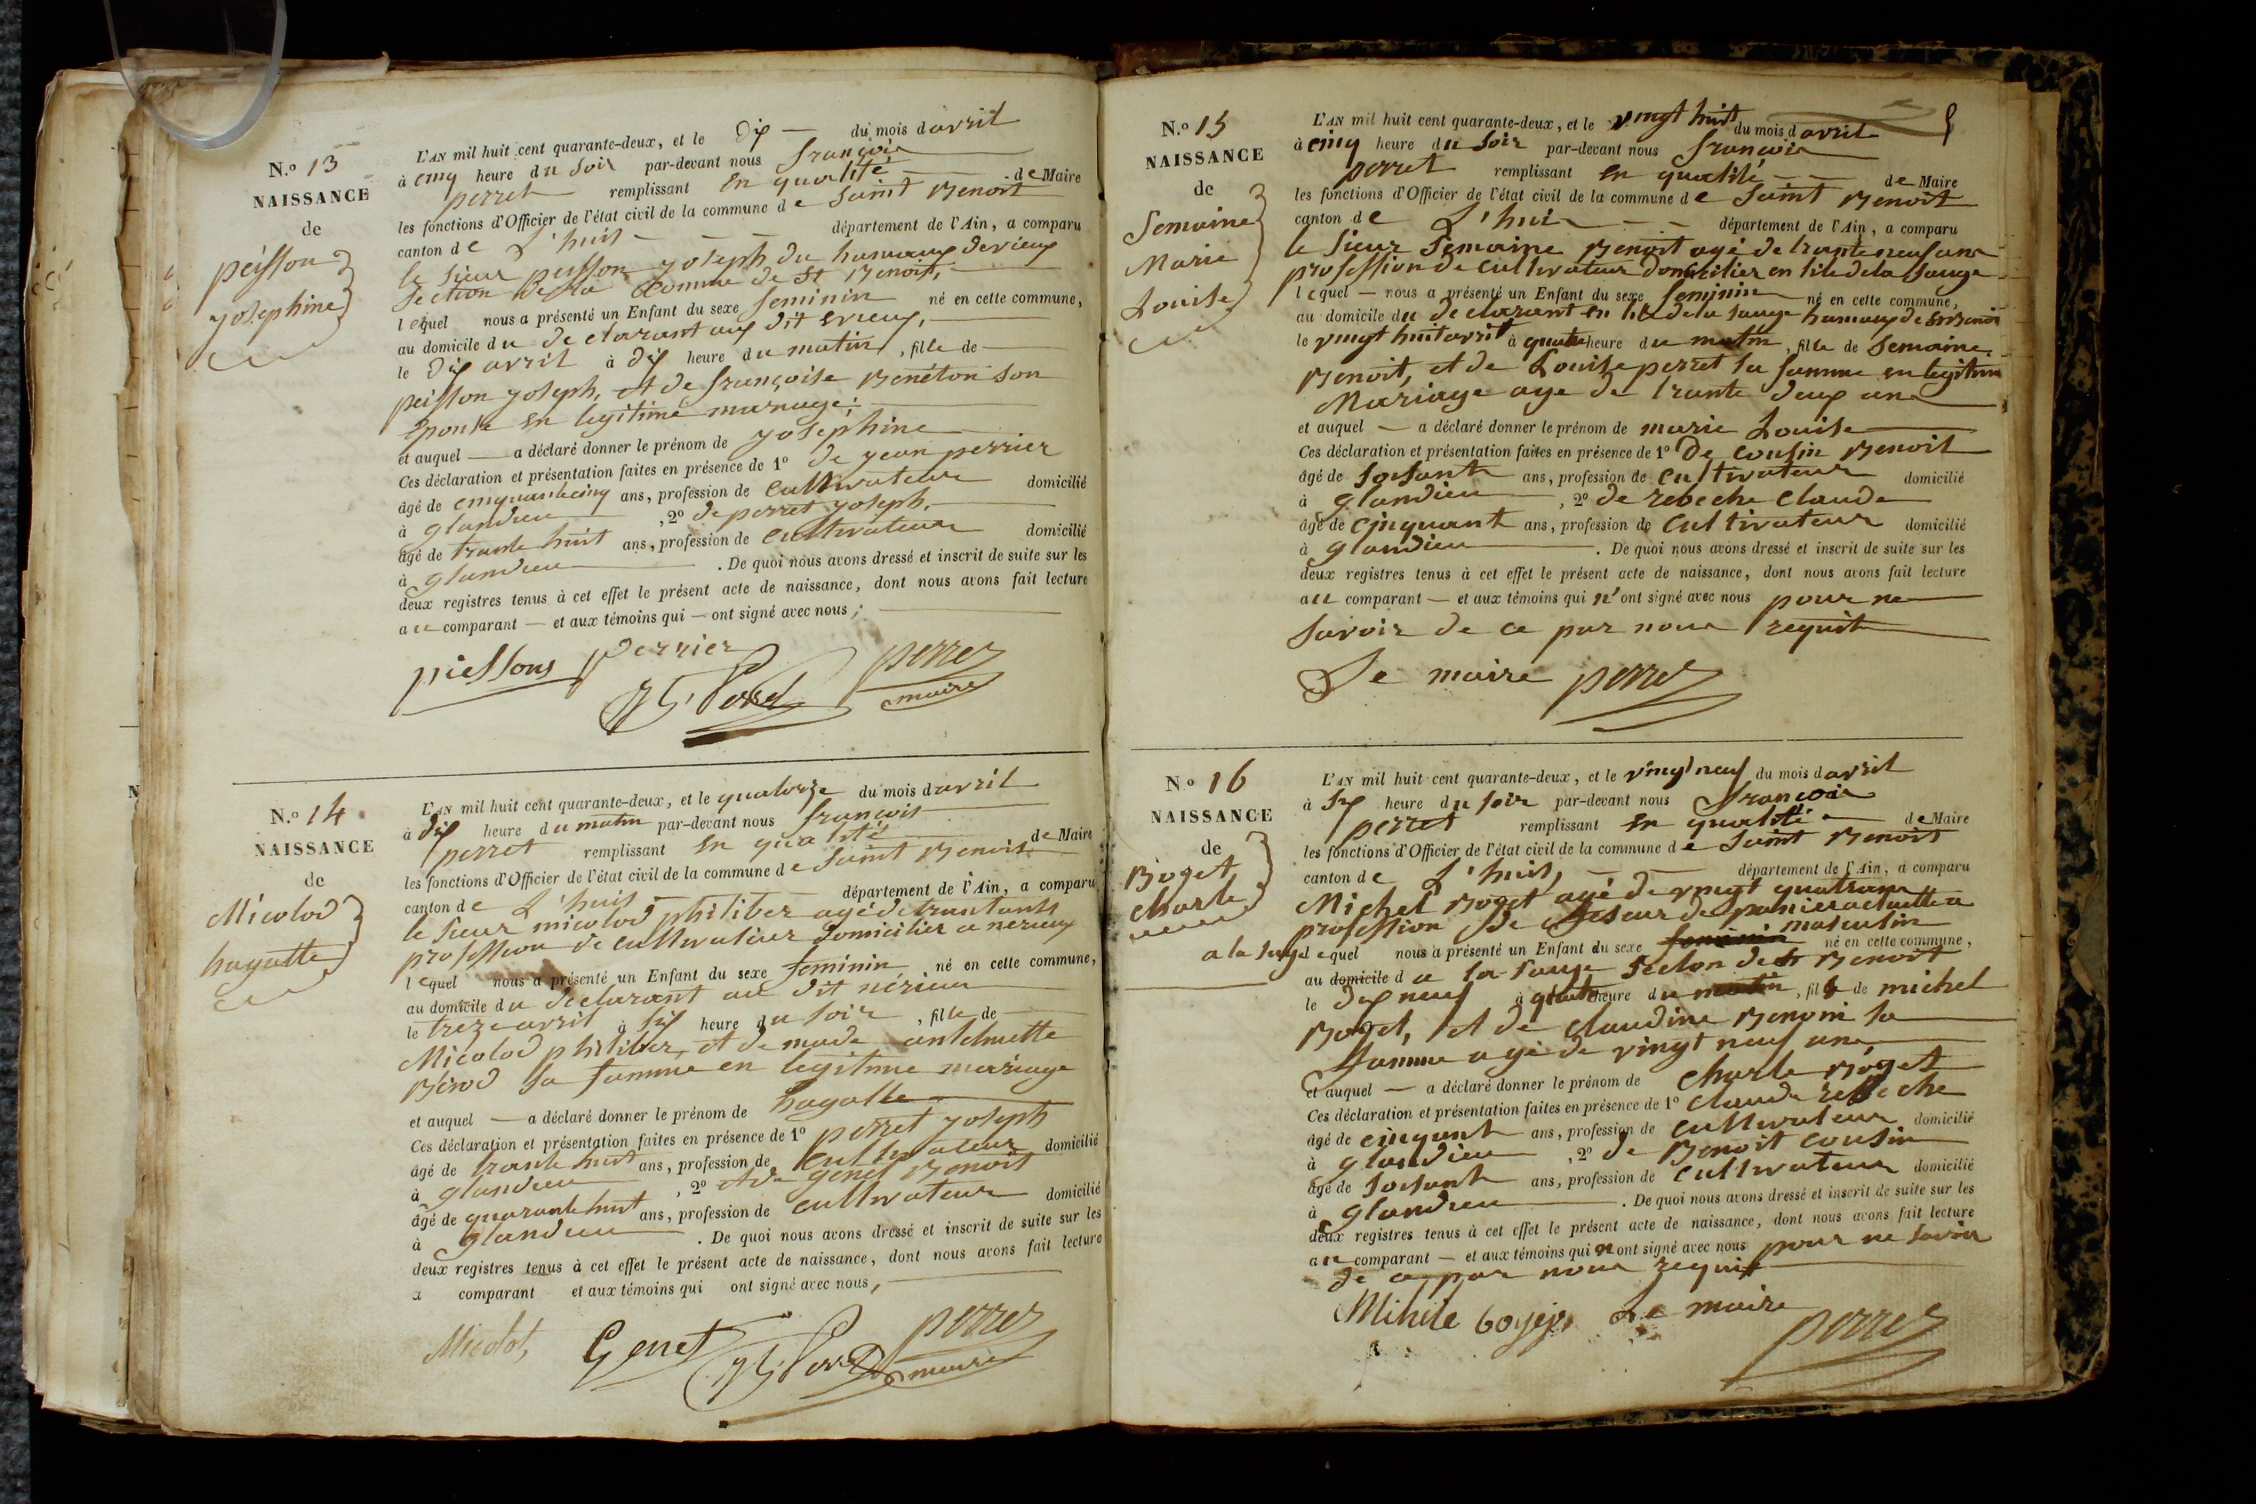 N.o 13
NAISSANCE
de
peisson
yosephine
L'AN mil huit cent quarante-deux, et le dix du mois d avril
à cinq heure du soir par-devant nous françois
perret remplissant en qualité de Maire
les fonctions d'Officier de l'état civil de la commune de saint Benoit
canton de L'huis département de l'Ain, a comparu
le sieur peisson yoseph du hamaux derieux
section de la Comune de St Benoit,
lequel nous a présenté un Enfant du sexe feminin né en cette commune,
au domicile du declarant aux dit erieux,
le dix avril à dix heure du matin, fille de
peisson yoseph, et de françoise Benéton son
epouse en legitime mariage;
et auquel a déclaré donner le prénom de yosephine
Ces déclaration et présentation faites en présence de 1o de yean perrier
âgé de cinquantecinq ans, profession de cultivateur domicilié
à glandieu, 2o de perret yoseph,
âgé de trante huit ans, profession de cultivateur domicilié
à glandieu. De quoi nous avons dressé et inscrit de suite sur les
deux registres tenus à cet effet le présent acte de naissance, dont nous avons fait lecture
au comparant et aux témoins qui ont signé avec nous;
piessons perrier perret
maire
N.o 14
NAISSANCE
de
Micolod
hagatte
L'AN mil huit cent quarante-deux, et le quatorze du mois d avril
à dix heure du matin par-devant nous françois
perret remplissant en qualité de Maire
les fonctions d'Officier de l'état civil de la commune de saint Benoit
canton de L'huis département de l'Ain, a comparu
le sieur micolod philiber agé de trantans
profession de cultivateur domicilier a nerieux
lequel nous a présenté un Enfant du sexe feminin né en cette commune,
au domicile du declarant au dit nérieu
le treze avril à six heure du soir, fille de
Micolod philiber et de made antelmette
Bérod sa famme en legitime mariage
et auquel a déclaré donner le prénom de hagatte
Ces déclaration et présentation faites en présence de 1o perret yoseph
âgé de trante huit ans, profession de cultivateur domicilié
à glandieu, 2o et de genet Benoit
âgé de quarantehuit ans, profession de cultivateur domicilié
à glandieu. De quoi nous avons dressé et inscrit de suite sur les
deux registres tenus à cet effet le présent acte de naissance, dont nous avons fait lecture
a comparant et aux témoins qui ont signé avec nous,
Micolot, Genet perret
maire
N.o 15
NAISSANCE
de
Semaine
Marie
Louise
L'AN mil huit cent quarante-deux, et le vingt huit du mois d avril
à cinq heure du soir par-devant nous françois
perret remplissant en qualité de Maire
les fonctions d'Officier de l'état civil de la commune de saint Benoit
canton de L'huis département de l'Ain, a comparu
le sieur Semaine Benoit agé de tranteneuf ans
profession de cultivateur domicilier en lile de la sauge
lequel nous a présenté un Enfant du sexe feminin né en cette commune,
au domicile du declarant en lile de la sauge hamaux de St Benoi
le vingt huit avril à quatre heure du matin, fille de Semaine
Benoit, et de Louise perret sa famme en legitime
Mariage age de trante deux ans
et auquel a déclaré donner le prénom de marie Louise
Ces déclaration et présentation faites en présence de 1o De cousin Benoit
âgé de soisante ans, profession de cultivateur domicilié
à glandieu, 2o de rebeche claude
âgé de cinquant ans, profession de cultivateur domicilié
à glandieu. De quoi nous avons dressé et inscrit de suite sur les
deux registres tenus à cet effet le présent acte de naissance, dont nous avons fait lecture
au comparant et aux témoins qui n'ont signé avec nous pour ne
savoir de ce par nous requit
Le maire perret
N.o 16
NAISSANCE
de
Boget
charle
L'AN mil huit cent quarante-deux, et le vingt neuf du mois d avril
à six heure du soir par-devant nous françois
perret remplissant en qualité de Maire
les fonctions d'Officier de l'état civil de la commune de saint Benoit
canton de L'huis, département de l'Ain, a comparu
Michel Boget agé de vingt quatrans
profession de faseur de panier
a la sauge lequel nous a présenté un Enfant du sexe feminin masculin né en cette commune,
au domicile d a la sauge section de st Benoit
le dix neuf à quatre heure du matin, fils de michel
Boget, et de claudine Benoni sa
famme agé de vingt neuf ans
et auquel a déclaré donner le prénom de charle Boget
Ces déclaration et présentation faites en présence de 1o claude rebeche
âgé de cinquant ans, profession de cultivateur domicilié
à glandieu, 2o de Benoit cousin
âgé de soisant ans, profession de cultivateur domicilié
à glandieu. De quoi nous avons dressé et inscrit de suite sur les
deux registres tenus à cet effet le présent acte de naissance, dont nous avons fait lecture
au comparant et aux témoins qui n ont signé avec nous pour ne savoir
de ce par nous requit
Le maire
perret